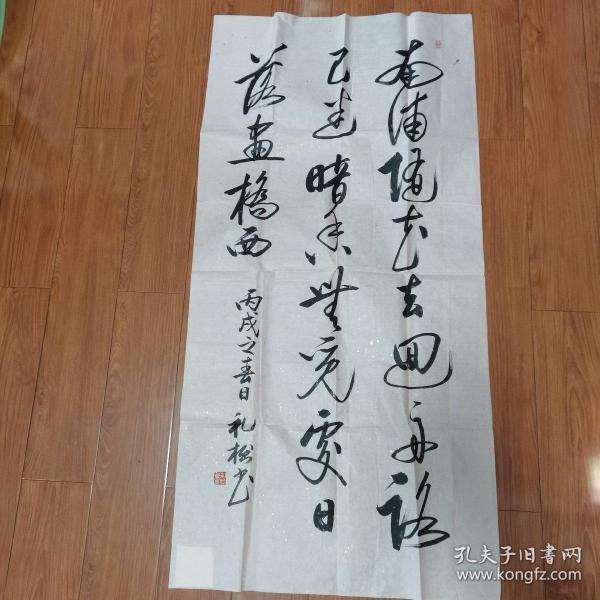 南浦随花去回舟路
已迷暗香無覓處日
落畫橋西
丙戌之春日礼格书
孔夫子旧书网
www.kongfz.com